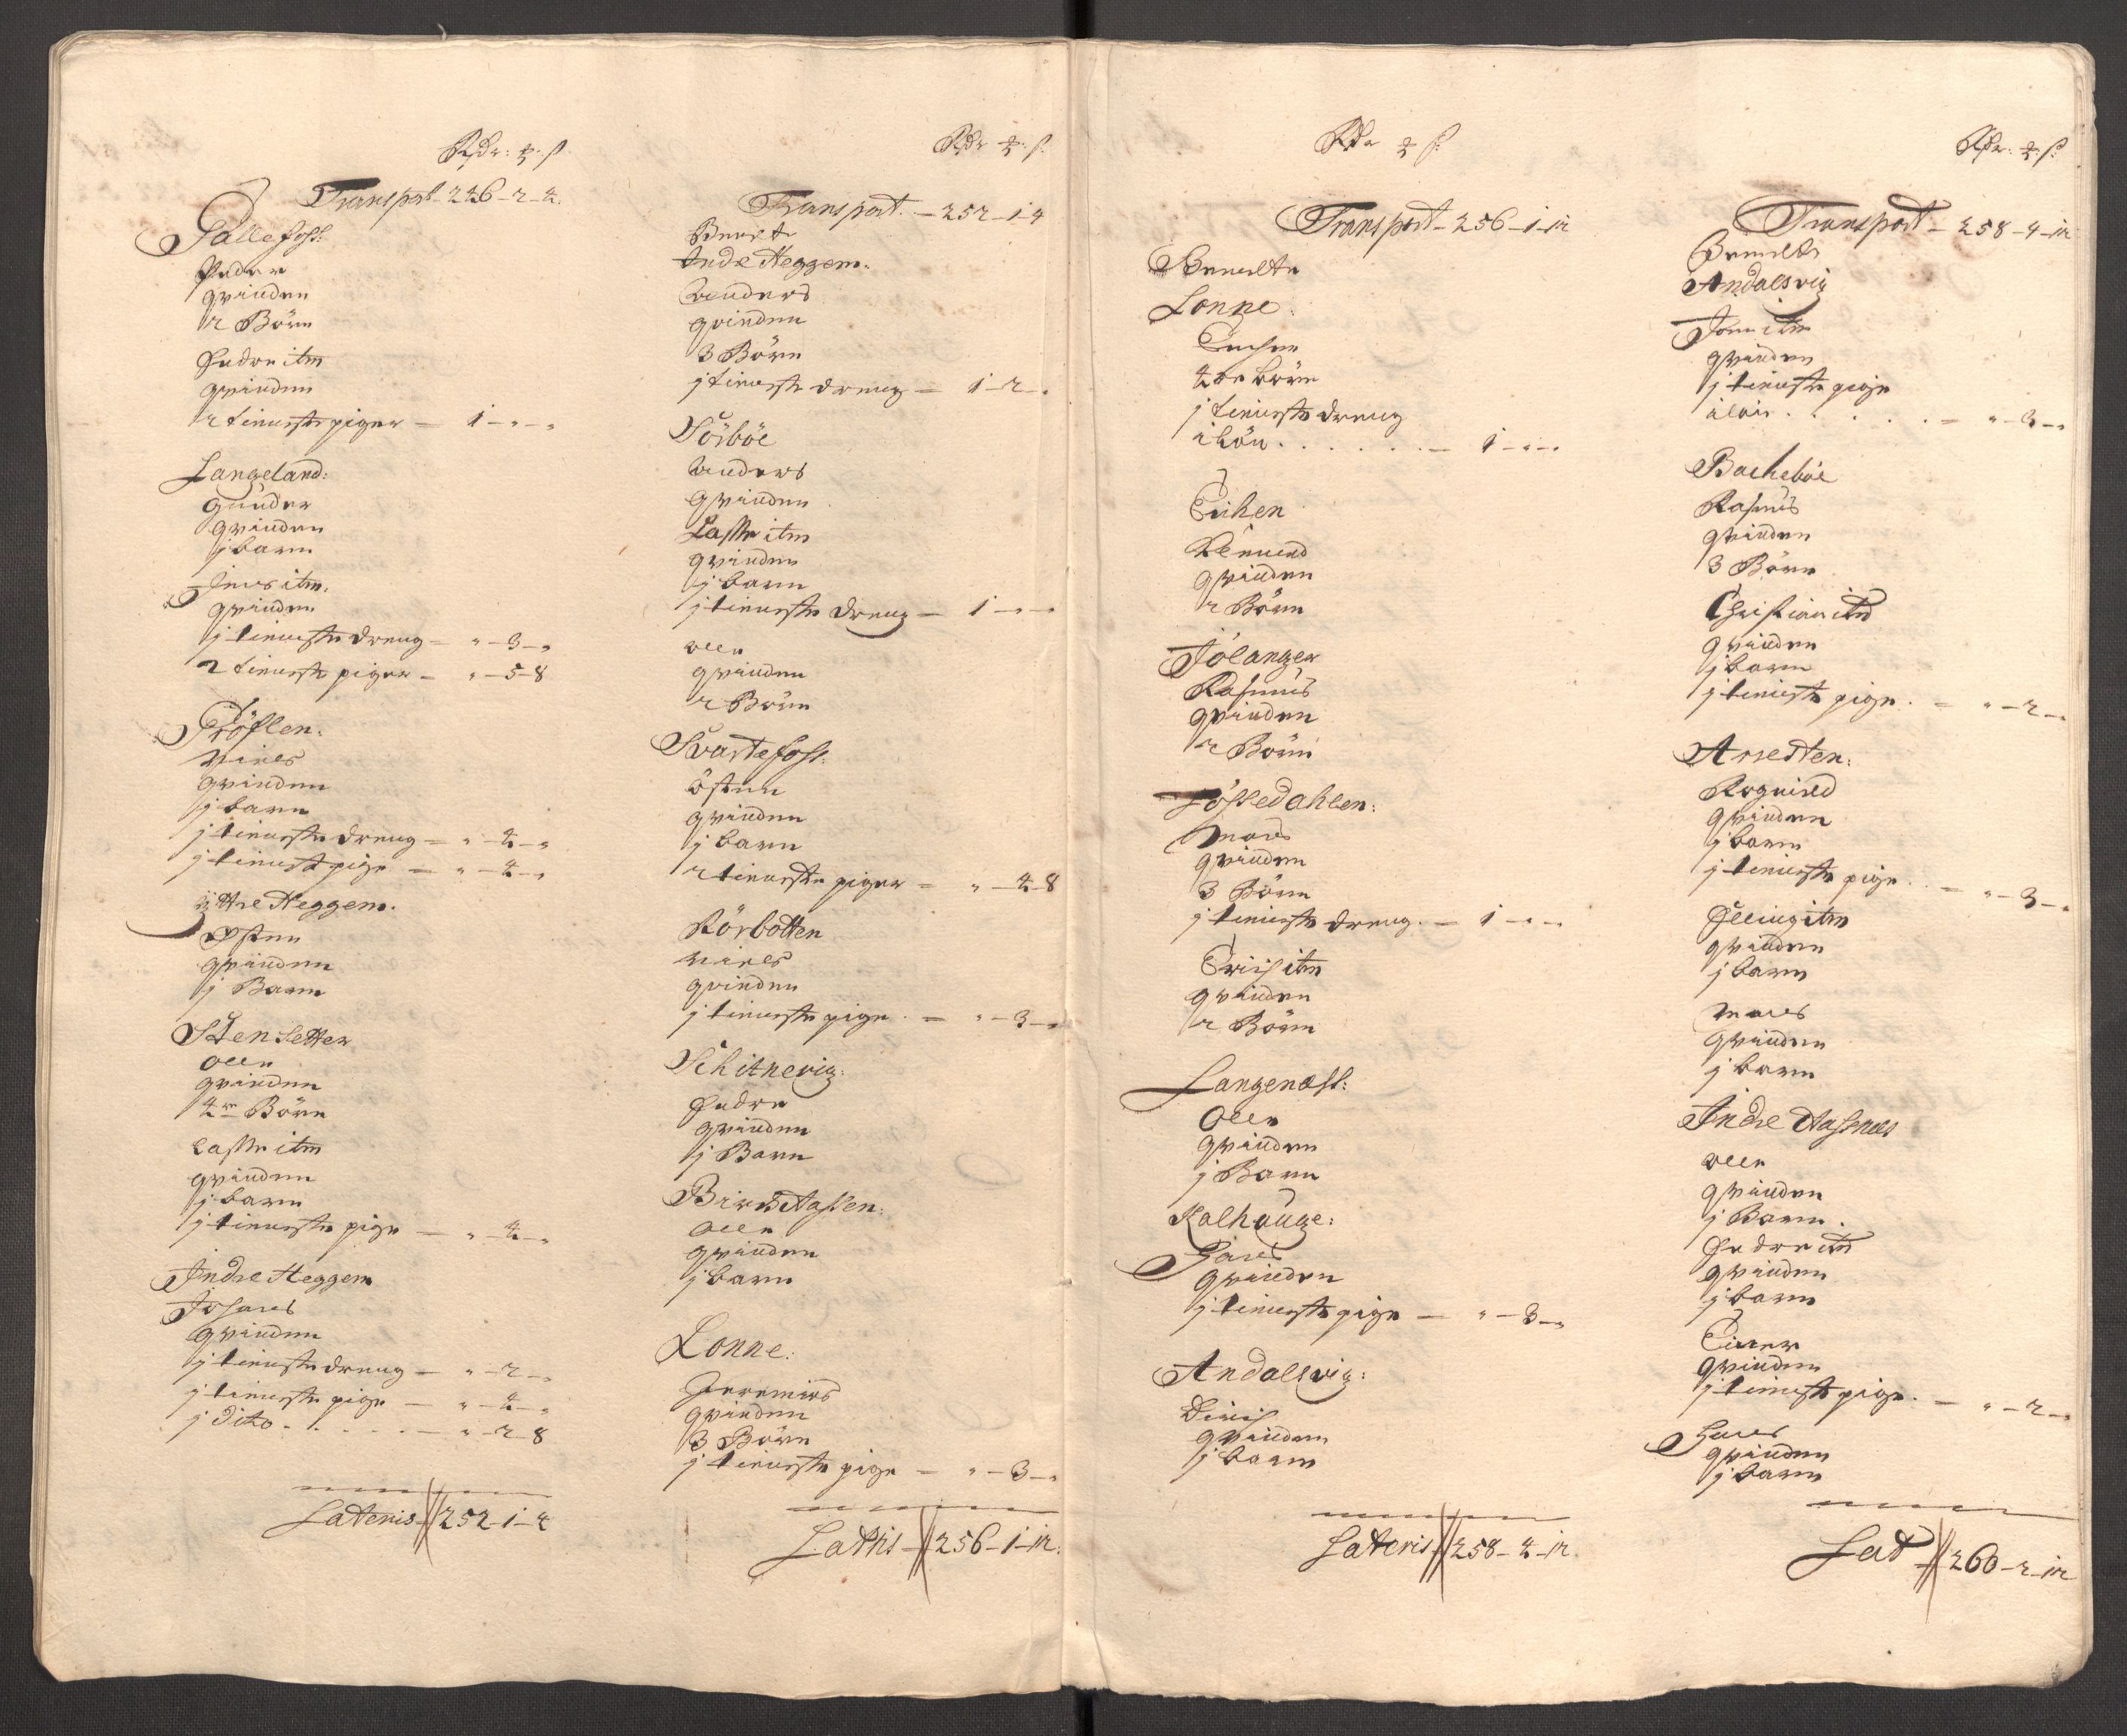 Rdr: ¥ ß
Transport 246-2-4.
Gallefoss:
Peder
qvinden
2 Börn
Peder itm
qvinden
2 tieneste piger — 1-"-"
Langeland:
Gunder
qvinden
j barn
Jens itm.
qvinden
j tieneste dreng — "-3-"
2 tieneste piger — "-5-8
Tröflen:
Niels
qvinden
j barn
j tieneste dreng — "-4-"
j tienest pige — "-4-"
ÿttre Heggem.
Østen
qvinden
j Barn
Stensetter
Olle
qvinden
4re Börn
Lasse itm
qvinden
j barn
j tieneste pige — "-4-"
Indre Heggem
Johanes
qvinden
j tieneste dreng — "-2-"
j tieneste pige — "-4-"
j dito . . . . . — "-2-8
Lateris 252-1-4
Rdr ¥ ß.
Transport. — 252-1-4
Bendte
Indre Heggem.
Anders
qvinden
3 Börn
j tieneste dreng — 1-2-"
Sörböe
Anders
qvinden
Lasse itm
qvinden
j barn
j tieneste dreng — 1-"-"
Olle
qvinden
2 Börn
Svartefoss:
östen
qvinden
j barn
2 tieneste piger — "-4-8
Rörbotten
Niels
qvinden
j tieneste pige — "-3-"
Schitnevig:
Peder
qvinden
j Barn
Birchassen:
Olle
qvinden
j barn
Lonne:
Jeremias
qvinden
3 Börn
j tieneste pige — "-3-"
Lathis 256-1-12.
Rdr ¥ ß
Transport — 256-1-12
Bendte
Lonne:
4re börn
j tieneste dreng
1-"-"
Eichen
qvinden
2 Börn
Jölanger
Rasmus
qvinden
2 Börn
Jössedahlen:
Mons
qvinden
3 Börn
j tieneste dreng. — 1-"-"
Eriß itm
qvinden
2 Börn
Langenoss:
Olle
qvinden
j Barn
Kalhouge:
Hans
qvinden
j tieneste pige — "-3-"
Andalsvig:
qvinden
j barn
Lateris 258-4-12.
Rdr. ¥. ß:
Transport — 258-4-12
Bendte
Andalsvig
qvinden
j tieneste pige
"-3-"
Bacheböe
Rasmus
qvinden
3 Börn
Christian itm
qvinden
j barn
j tieneste pige . — "-2-"
Arsetten:
Rognild
qvinden
j barn
j tieneste pige . — "-3-"
Elling itm
qvinden
j barn
Mons
qvinden
j barn
Indre Hassnes
Olle
qvinden
j Barn.
Peder itm
qvinden
j barn
Einer
qvinden
j tieneste pige. — "-2-"
Hans
qvinden
j barn
Lat 260-2-12